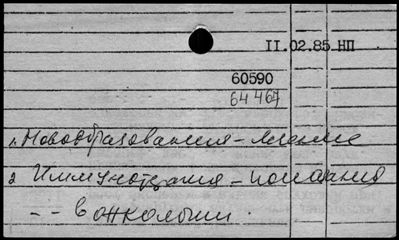 II.02.85 НП
60590
64467
1. Новообразования - лечение
2 Иммунотерапия - показания
- - в онкологии.